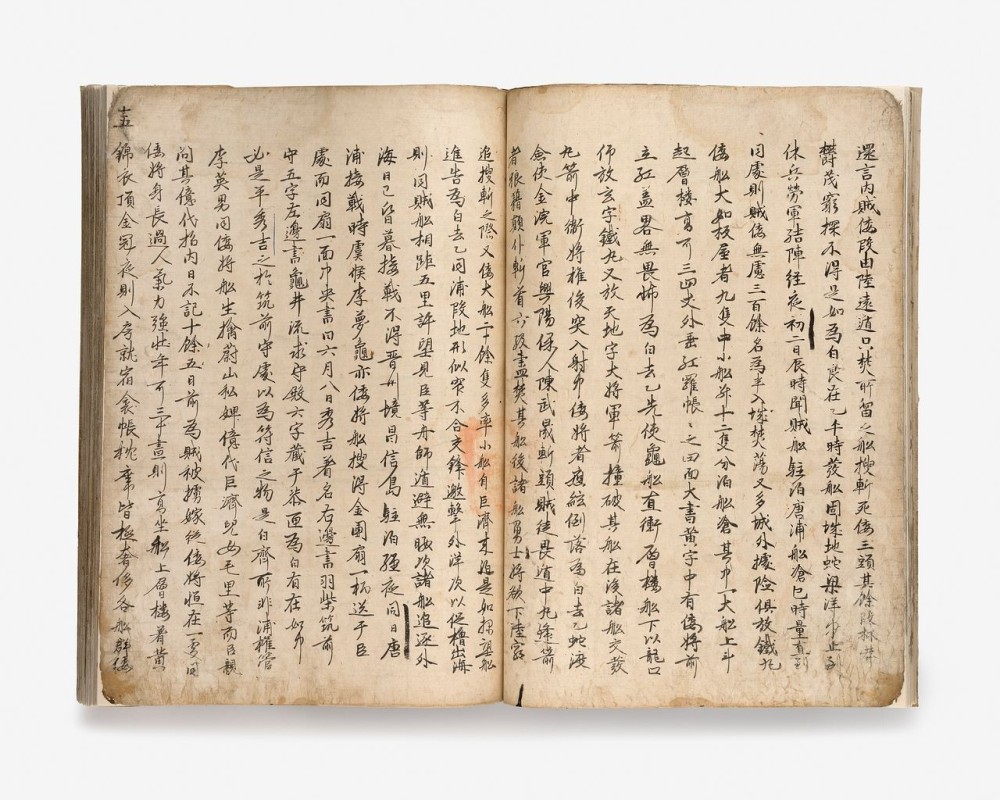 還言內賊倭段由陸遠遁只焚所留之船搜斬死倭三頭其餘段林井
鬱茂窮探不得是如為白良在乙午時發船固城地蛇梁洋中止到
休兵勞軍結陣経夜初二日辰時聞賊船駐泊唐浦船滄巳時量直到
同處則賊倭無慮三百餘名為半入城焚蕩又多城外據險俱放鐵丸
倭船大如板屋者九隻中小船幷十二隻分泊船滄其中一大船上斗
起層樓高可三四丈外垂紅羅帳〻之四面大書黃字中有倭將前
立紅盖畧無畏怖為白去乙先使龜船直衝層樓船下以龍口
仰放玄字鐵丸又放天地字大將軍箭撞破其船在後諸船交發
丸箭中衛將權俊突入射中倭將者應絃倒落為白去乙蛇渡
僉使金浣軍官興陽保人陳武晟斬頭賊徒畏遁中丸逢箭
者狼藉顚仆斬首六級盡焚其船後諸船勇士將欲下陸窮
追搜斬之際又倭大船二十餘隻多率小船自巨濟来泊是如探望船
進告為白去乙同浦段地形似窄不合交鋒邀擊外洋次以促櫓出海
則同賊船相距五里許望見臣等舟師遁避無暇次諸船追逐外
海日已昏暮接戰不得晋州境昌信島駐泊経夜同日唐
浦接戰時虞候李夢龜亦倭將船搜得金團扇一柄送于臣
處而同扇一面中央書曰六月八日秀吉著名右邊書羽柴筑前
守五字左邊書龜井流求守殿六字藏于漆匣為白有在如中
必是平秀吉之於筑前守處以為符信之物是白齊所非浦權管
李英男同倭將船生擒蔚山私婢億代巨濟兒女毛里等而臣親
問其億代招內日不記十餘五日前為賊被擄嫁従倭將恒在一處同
倭將身長過人氣力強壯年可三十晝則高坐船上層樓着黃
錦衣頂金冠夜則入房就宿衾帳枕席皆極奢侈各船群倭
十五